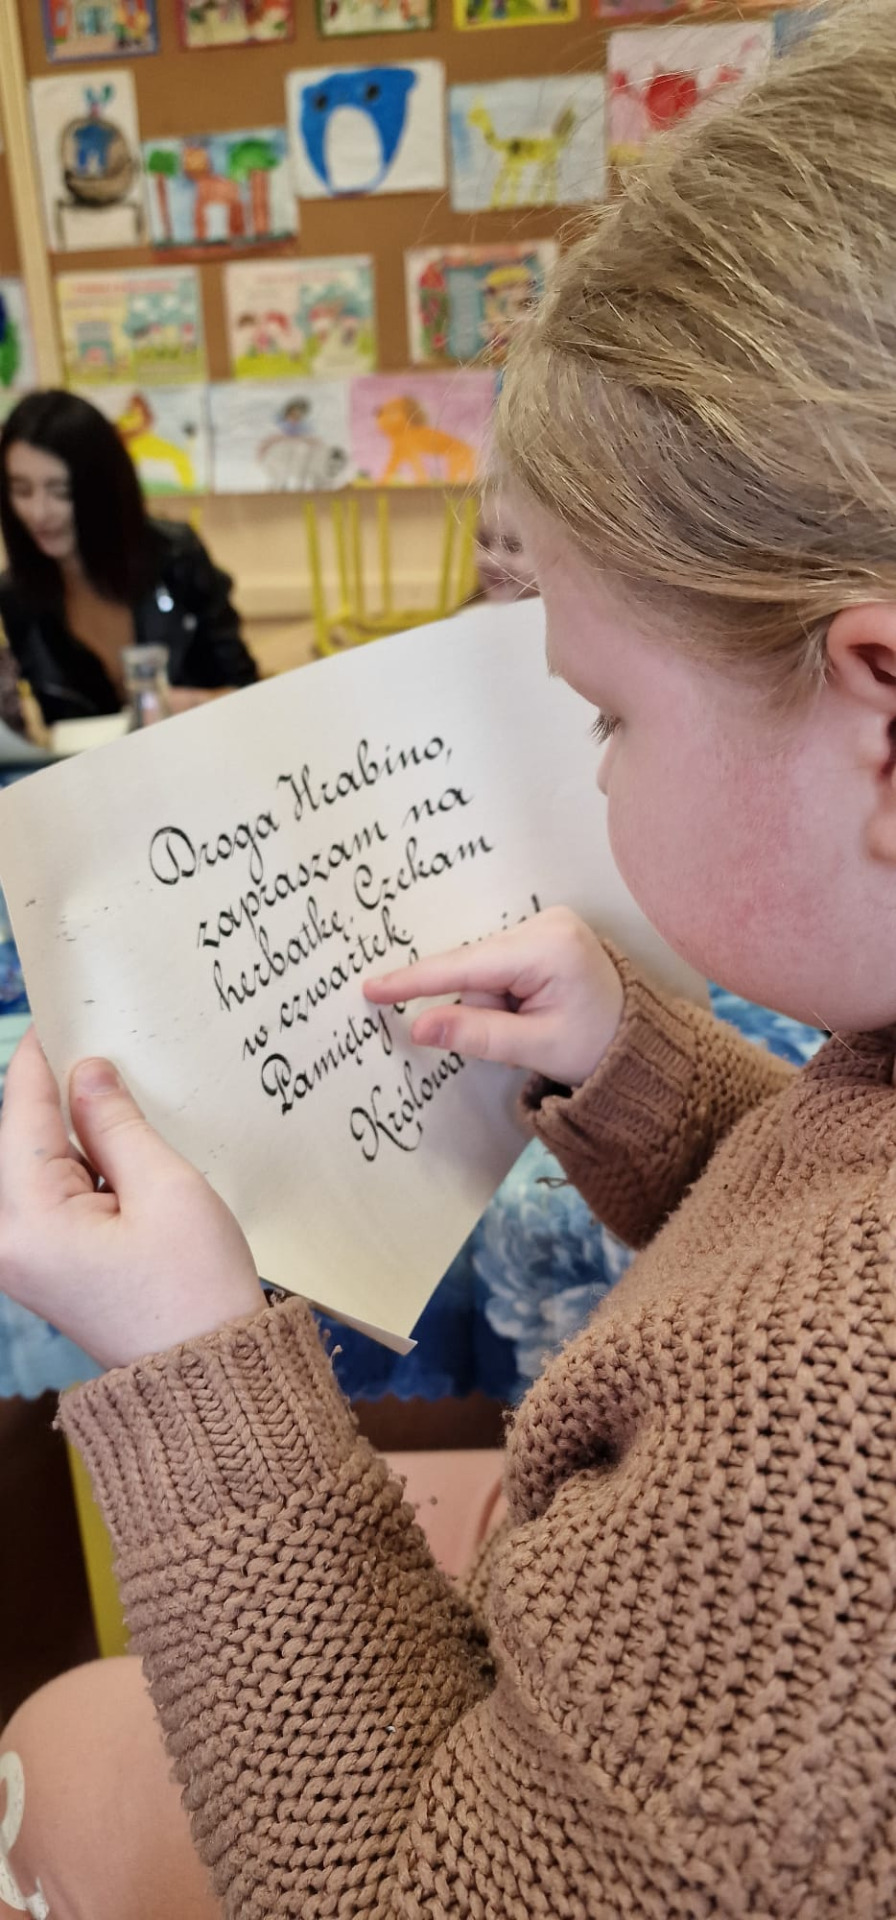 Droga Hrabino,
zapraszam na
herbatkę. Czekam
w czwartek.
Pamiętaj
Królowa